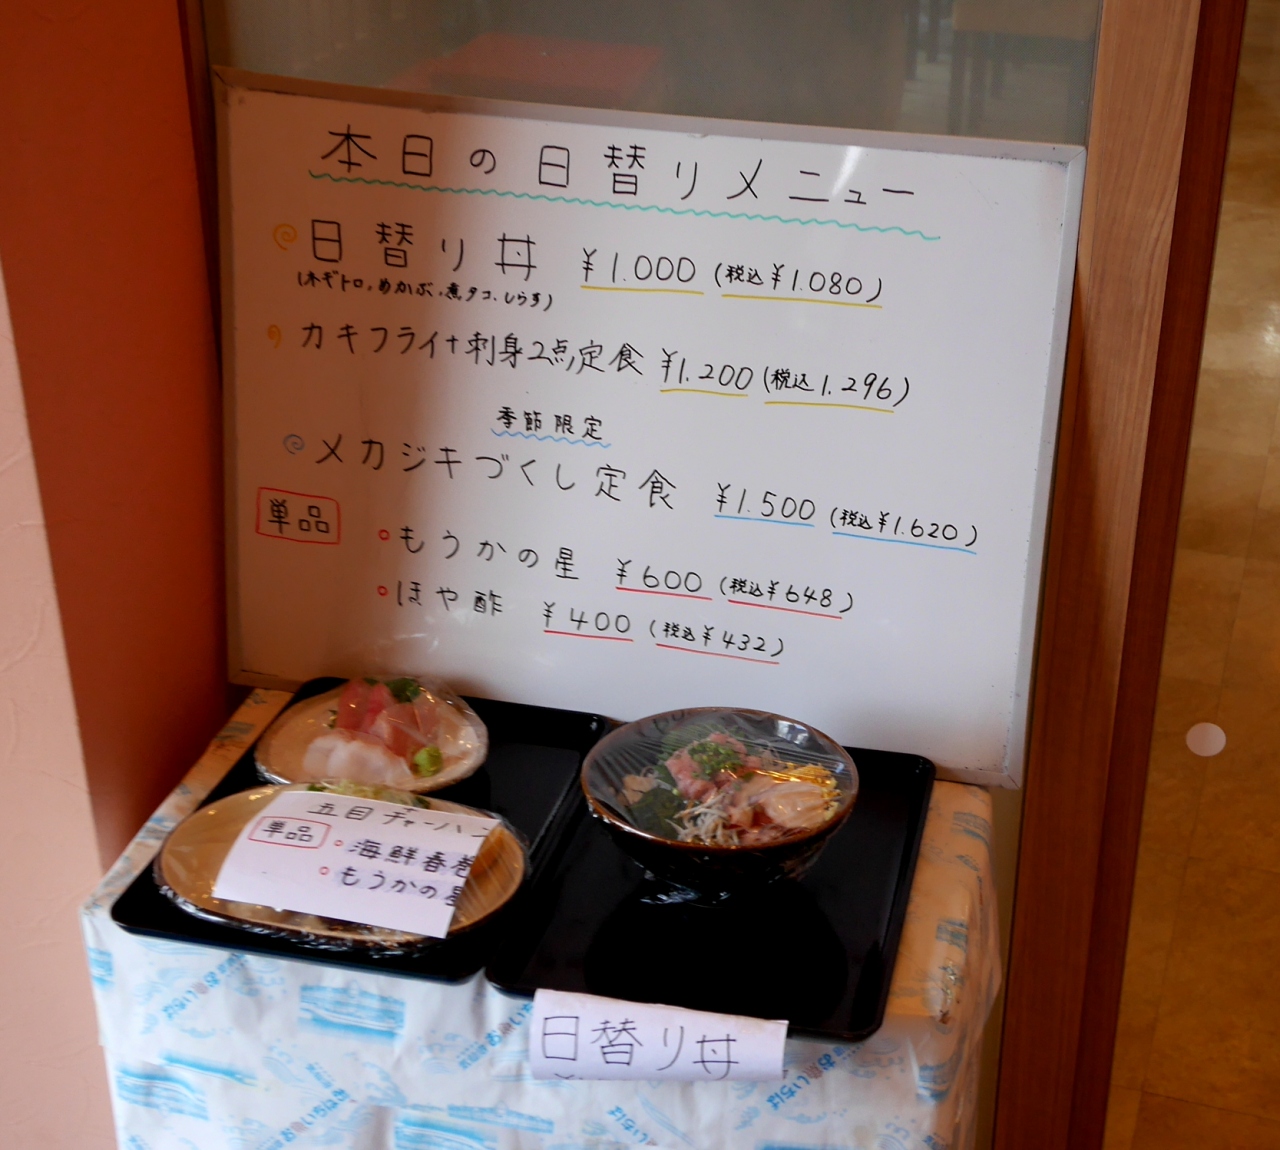 本日の日替りメニュー
日替り丼 ¥1.000 (税込¥1.080)
(ネギトロ、めかぶ、煮タコ、しらす)
カキフライ+刺身2点定食 ¥1.200 (税込1.296)
季節限定
メカジキづくし定食 ¥1.500 (税込¥1.620)
単品
もうかの星 ¥600 (税込¥648)
ほや酢 ¥400 (税込¥432)
五目チャーハン
単品
海鮮春巻
もうかの星
日替り丼